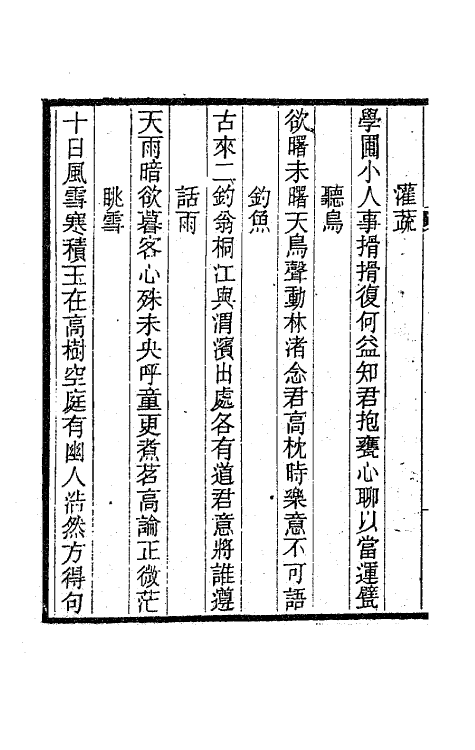 灌蔬
學圃小人事搰搰復何益知君抱甕心聊以當運甓
聽鳥
欲曙未曙天鳥聲動林渚念君高枕時樂意不可語
釣魚
古來二釣翁桐江與渭濱出處各有道君意將誰遵
話雨
天雨暗欲暮客心殊未央呼童更煮茗高論正微茫
眺雪
十日風雪寒積玉在高樹空庭有幽人浩然方得句